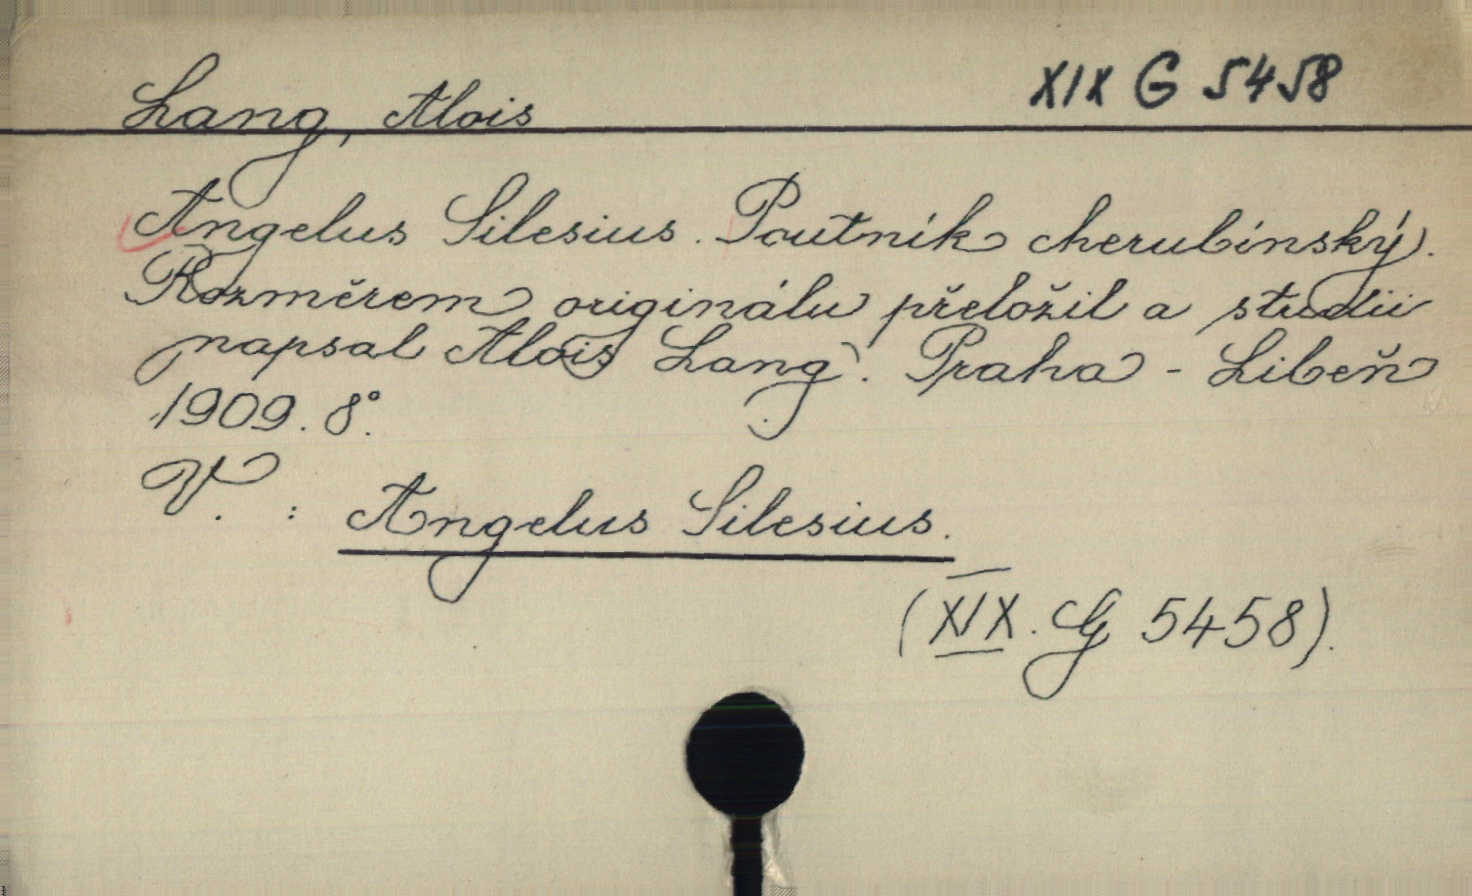 Lang, Alois XIX G 5458
Angelus Silesius. Poutník cherubínský.
Rozměrem originálu přeložil a studii
napsal Alois Lang. Praha - Libeň
1909. 8°.
V. : Angelus Silesius.
(XIX. G 5458).